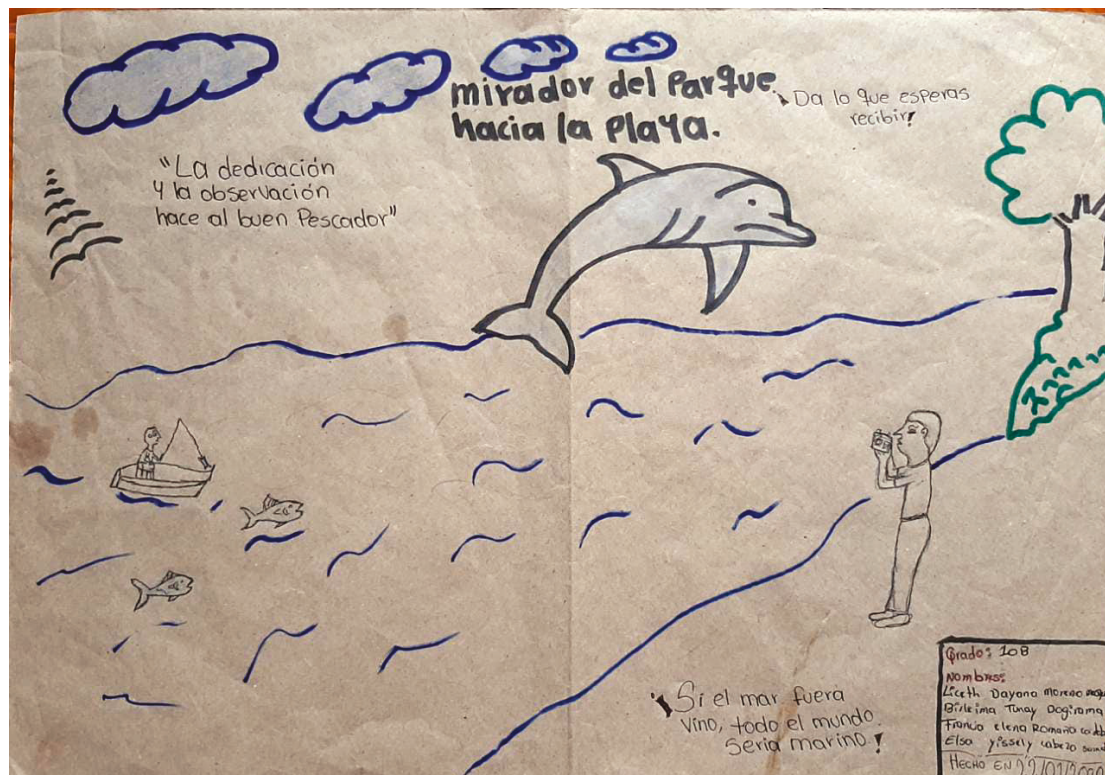 mirador del Parque
hacia la Playa.
¡Da lo que esperas
recibir!
"La dedicación
y la observación
hace al buen Pescador"
¡Si el mar fuera
vino, todo el mundo
seria marino!
Grado: 10B
Nombres:
Liceth Dayana Moreno
Birleima Tunay Dogirama
Francia elena Romaña
Elsa yissely cabezo
HECHO EN